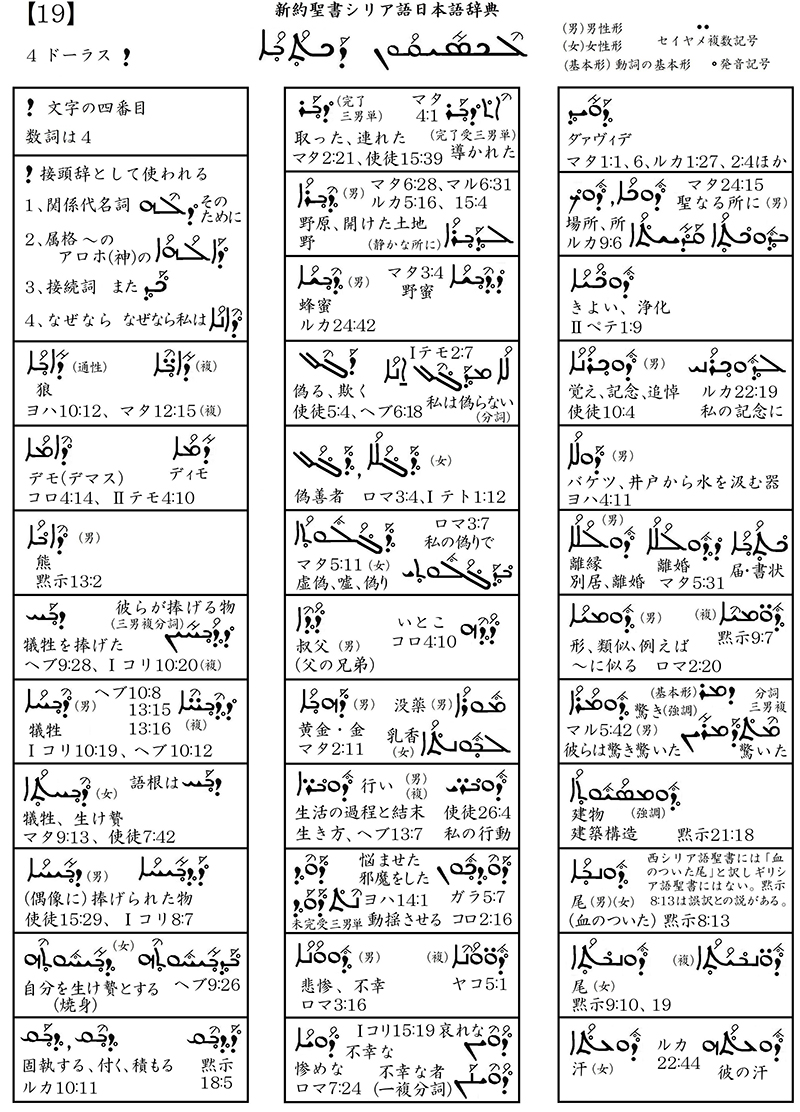 【19】
新約聖書シリア語日本語辞典
4 ドーラス ܕ
(男)男性形
(女)女性形
セイヤメ複数記号
(基本形)動詞の基本形 発音記号
ܕ 文字の四番目
数詞は4
ܕ 接頭辞として使われる
1、関係代名詞 そのために
2、属格 〜の
アロホ(神)の ܕܐܠܗܐ
3、接続詞 また
4、なぜなら なぜなら私は ܕܐܢܐ
ܕܐܒܐ (通性) ܕܐܒܐ (複)
狼
ヨハ10:12、マタ12:15(複)
ܕܐܡܐ
デモ(デマス) ディモ
コロ4:14、Ⅱテモ4:10
(男)
熊
黙示13:2
ܕܒܚ 彼らが捧げる物
(三男複分詞)
犠牲を捧げた
ヘブ9:28、Ⅰコリ10:20(複)
ܕܒܚܐ (男) ヘブ10:8
13:15
13:16
(複)
犠牲
Ⅰコリ10:19、ヘブ10:12
ܕܒܚܬܐ (女) 語根は ܕܒܚ
犠牲、生け贄
マタ9:13、使徒7:42
(男)
(偶像に)捧げられた物
使徒15:29、Ⅰコリ8:7
(女)
自分を生け贄とする ヘブ9:26
(焼身)
ܕܒܩ
固執する、付く、積もる 黙示
ルカ10:11 18:5
ܕܒܪ (完了
三男単) マタ
4:1
取った、連れた (完了受三男単)
マタ2:21、使徒15:39 導かれた
ܕܒܪܐ (男) マタ6:28、マル6:31
ルカ5:16、15:4
野原、開けた土地
野 (静かな所に)
ܕܒܫܐ (男) マタ3:4
野蜜
蜂蜜
ルカ24:42
ܕܓܠ Ⅰテモ2:7
偽る、欺く
私は偽らない
使徒5:4、ヘブ6:18 (分詞)
ܕܓܠ, ܕܓܠܐ (女)
偽善者 ロマ3:4、Ⅰテト1:12
ܕܓܠܘܬܐ ロマ3:7
私の偽りで
マタ5:11 (女)
虚偽、嘘、偽り
ܕܕܐ いとこ
叔父 (男) コロ4:10
(父の兄弟)
ܕܗܒܐ (男) 没薬 (男) ܡܘܪܐ
黄金・金 乳香
マタ2:11 (女) ܠܒܘܢܬܐ
ܕܘܒܪܐ 行い (男)
(複)
生活の過程と結末 使徒26:4
生き方、ヘブ13:7 私の行動
悩ませた
邪魔をした
ヨハ14:1 ガラ5:7
未完受三男単 動揺させる コロ2:16
ܕܘܘܢܐ (男) (複)
悲惨、不幸 ヤコ5:1
ロマ3:16
Ⅰコリ15:19 哀れな
不幸な
惨めな 不幸な者
ロマ7:24 (一複分詞)
ܕܘܝܕ
ダァヴィデ
マタ1:1、6、ルカ1:27、2:4ほか
ܕܘܟܐ, マタ24:15
聖なる所に (男)
場所、所
ルカ9:6
ܕܘܟܝܐ
きよい、浄化
Ⅱペテ1:9
ܕܘܟܪܢܐ (男)
覚え、記念、追悼 ルカ22:19
使徒10:4 私の記念に
ܕܘܠܐ (男)
バケツ、井戸から水を汲む器
ヨハ4:11
(男)
離縁 離婚 届・書状
別居、離婚 マタ5:31
ܕܘܡܝܐ (男) (複)
黙示9:7
形、類似、例えば
〜に似る ロマ2:20
ܕܘܡܪܐ (基本形) ܕܡܪ 分詞
驚き(強調) 三男複
マル5:42 (男)
彼らは驚き驚いた 驚いた
建物 (強調)
建築構造 黙示21:18
ܕܘܢܒܐ 西シリア語聖書には「血
のついた尾」と訳しギリシ
ア語聖書にはない。黙示
尾 (男)(女) 8:13は誤訳との説がある。
(血のついた) 黙示8:13
ܕܘܢܒܬܐ (複)
尾 (女)
黙示9:10、19
ܕܘܥܬܐ ルカ
22:44
汗 (女) 彼の汗